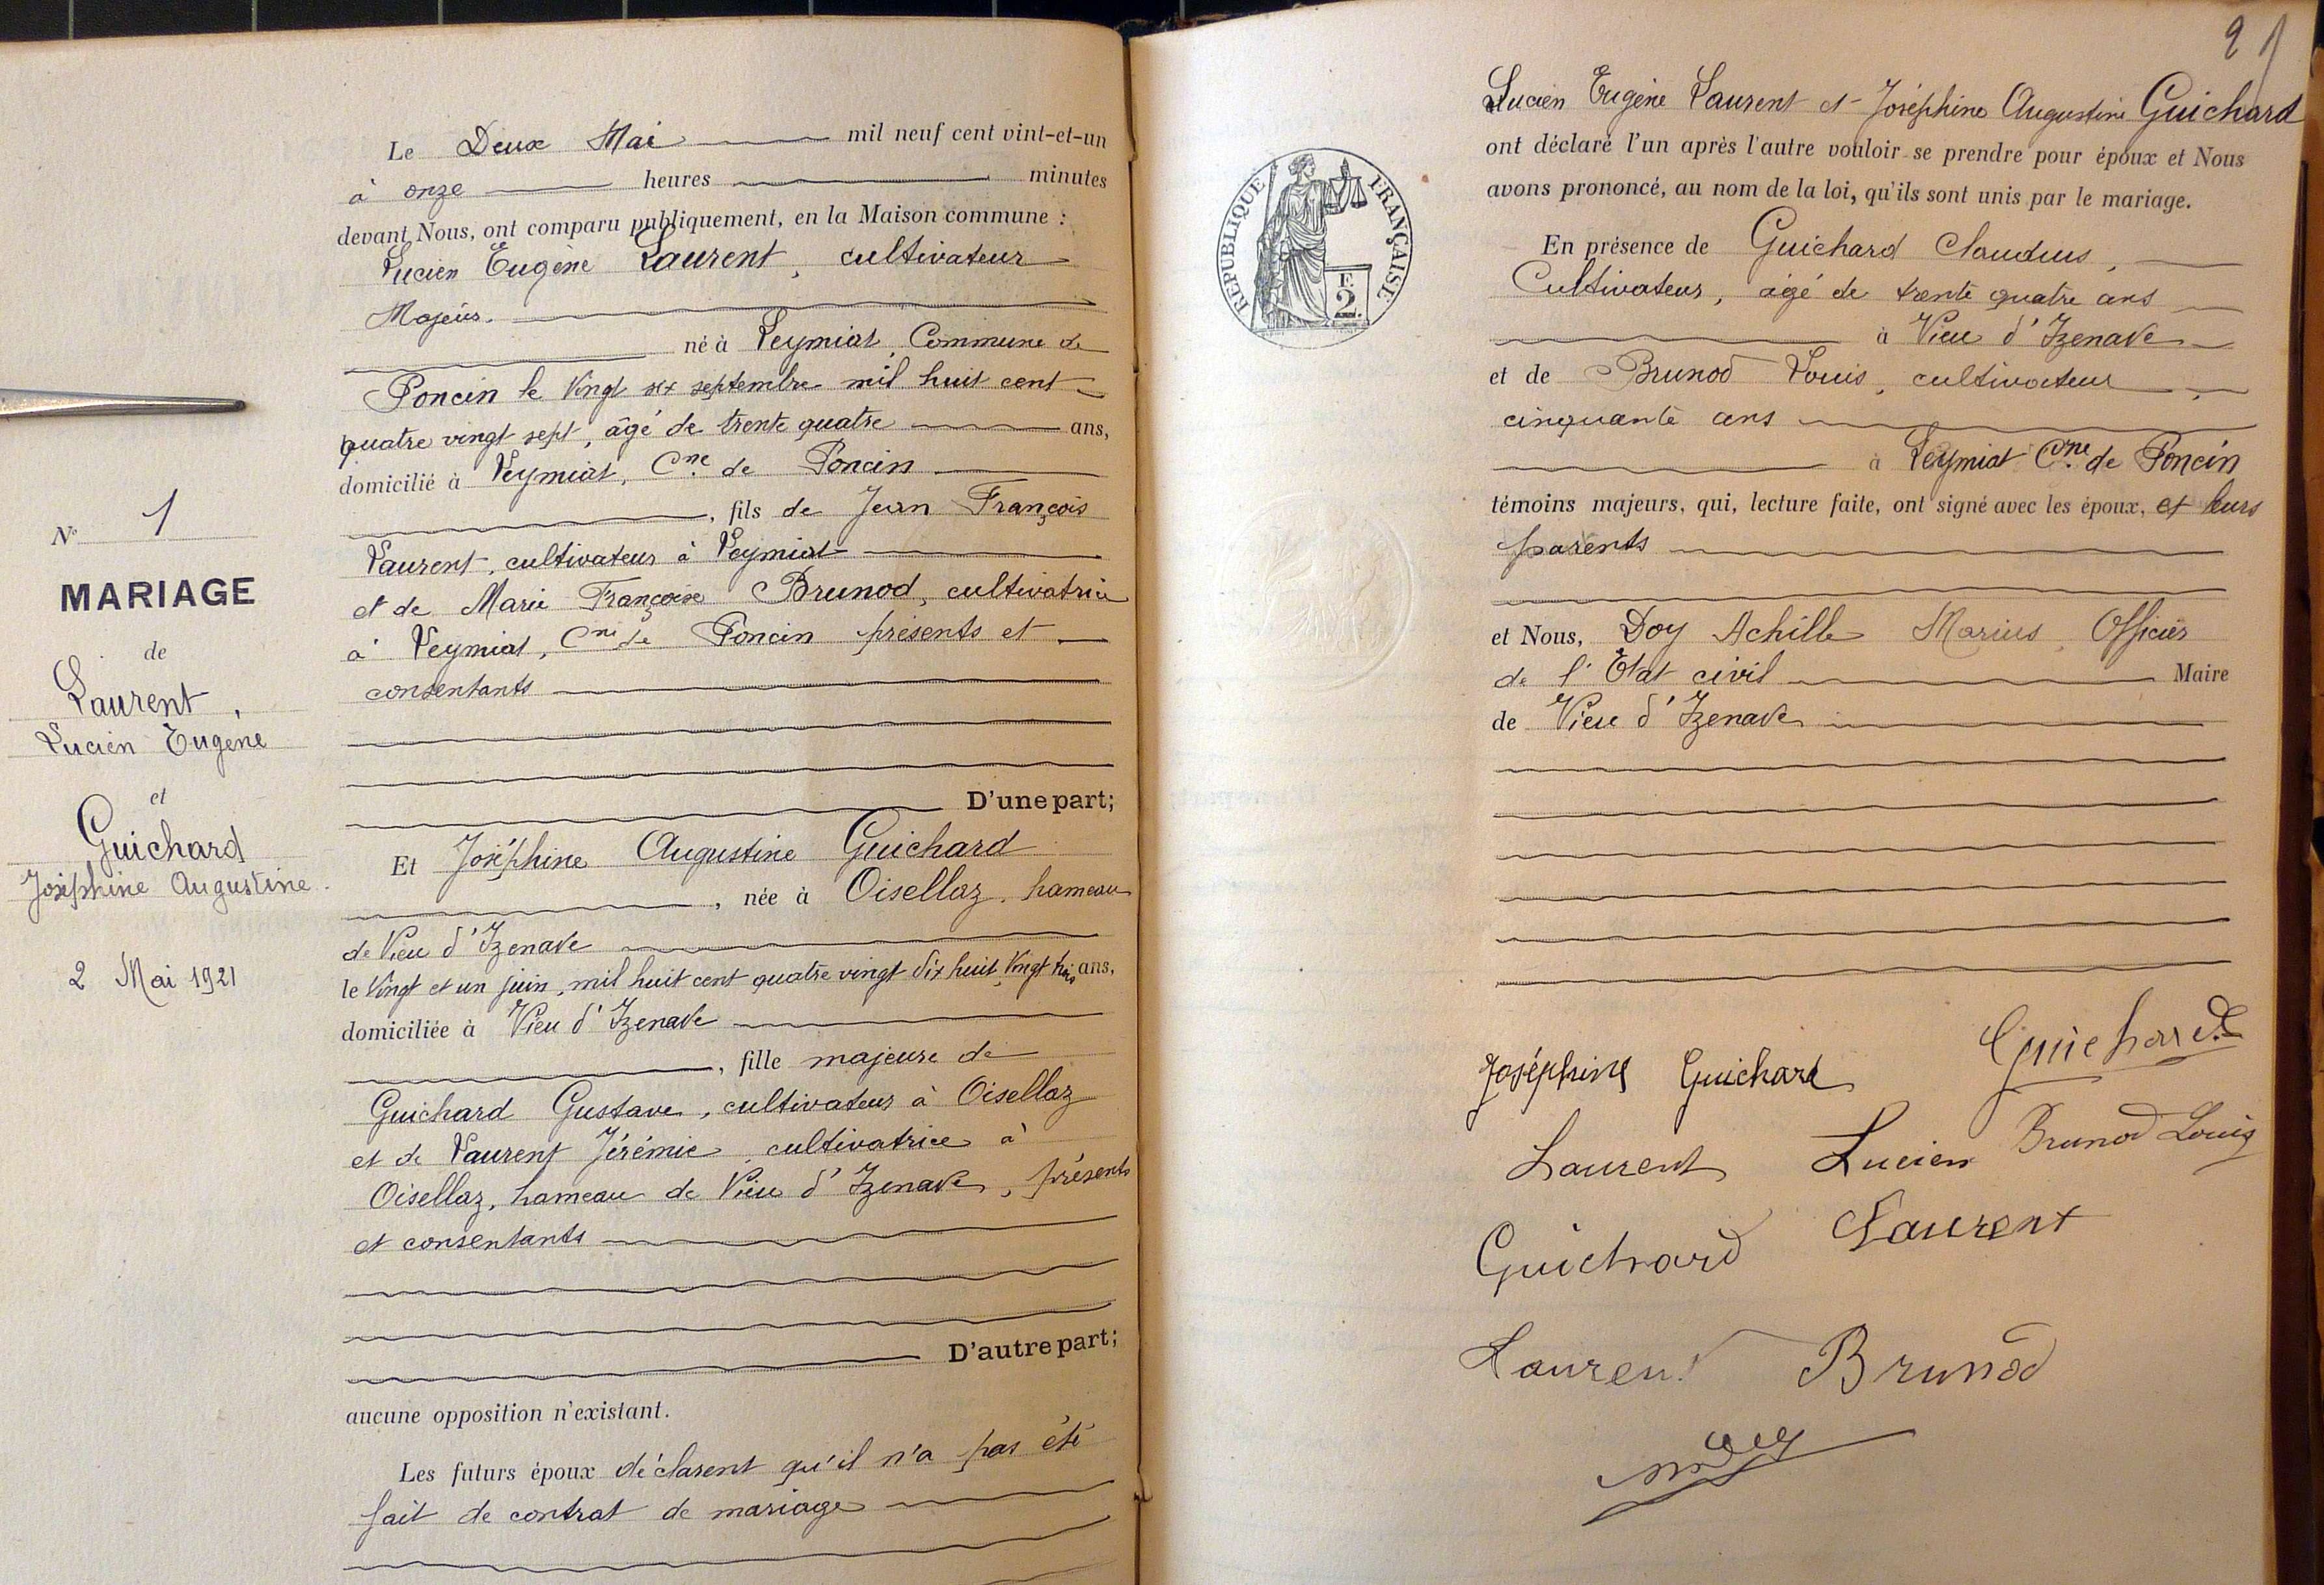 N° 1
MARIAGE
de
Laurent,
Lucien Eugène
et
Guichard
Joséphine Augustine.
2 Mai 1921
Le Deux Mai mil neuf cent vint-et-un
à onze heures minutes
devant Nous, ont comparu publiquement, en la Maison commune :
Lucien Eugène Laurent, cultivateur
Majeur.
né à Leymiat, Commune de
Poncin le Vingt six septembre mil huit cent
quatre vingt sept, âgé de trente quatre ans,
domicilié à Leymiat, Cne de Poncin
, fils de Jean François
Laurent, cultivateur à Leymiat
et de Marie Françoise Brunod, cultivatrice
à Leymiat, Cne de Poncin présents et
consentants
D'une part;
Et Joséphine Augustine Guichard
, née à Oisellaz, hameau
de Vieu d'Izenave
le Vingt et un juin, mil huit cent quatre vingt dix huit, Vingt trois ans,
domiciliée à Vieu d'Izenave
, fille majeure de
Guichard Gustave, cultivateur à Oisellaz
et de Laurent Jérémie, cultivatrice à
Oisellaz, hameau de Vieu d'Izenave, présents
et consentants
D'autre part;
aucune opposition n'existant.
Les futurs époux déclarent qu'il n'a pas été
fait de contrat de mariage
2
REPUBLIQUE FRANÇAISE
F.
2.
Lucien Eugène Laurent et Joséphine Augustine Guichard
ont déclaré l'un après l'autre vouloir se prendre pour époux et Nous
avons prononcé, au nom de la loi, qu'ils sont unis par le mariage.
En présence de Guichard Claudius,
Cultivateur, âgé de trente quatre ans
à Vieu d'Izenave
et de Brunod Louis, cultivateur,
cinquante ans
à Leymiat Cne de Poncin
témoins majeurs, qui, lecture faite, ont signé avec les époux, et leurs
parents
et Nous, Doy Achille Marius, Officier
de l'Etat civil Maire
de Vieu d'Izenave
Joséphine Guichard Guichard
Laurent Lucien Brunod Louis
Guichard Laurent
Laurent Brunod